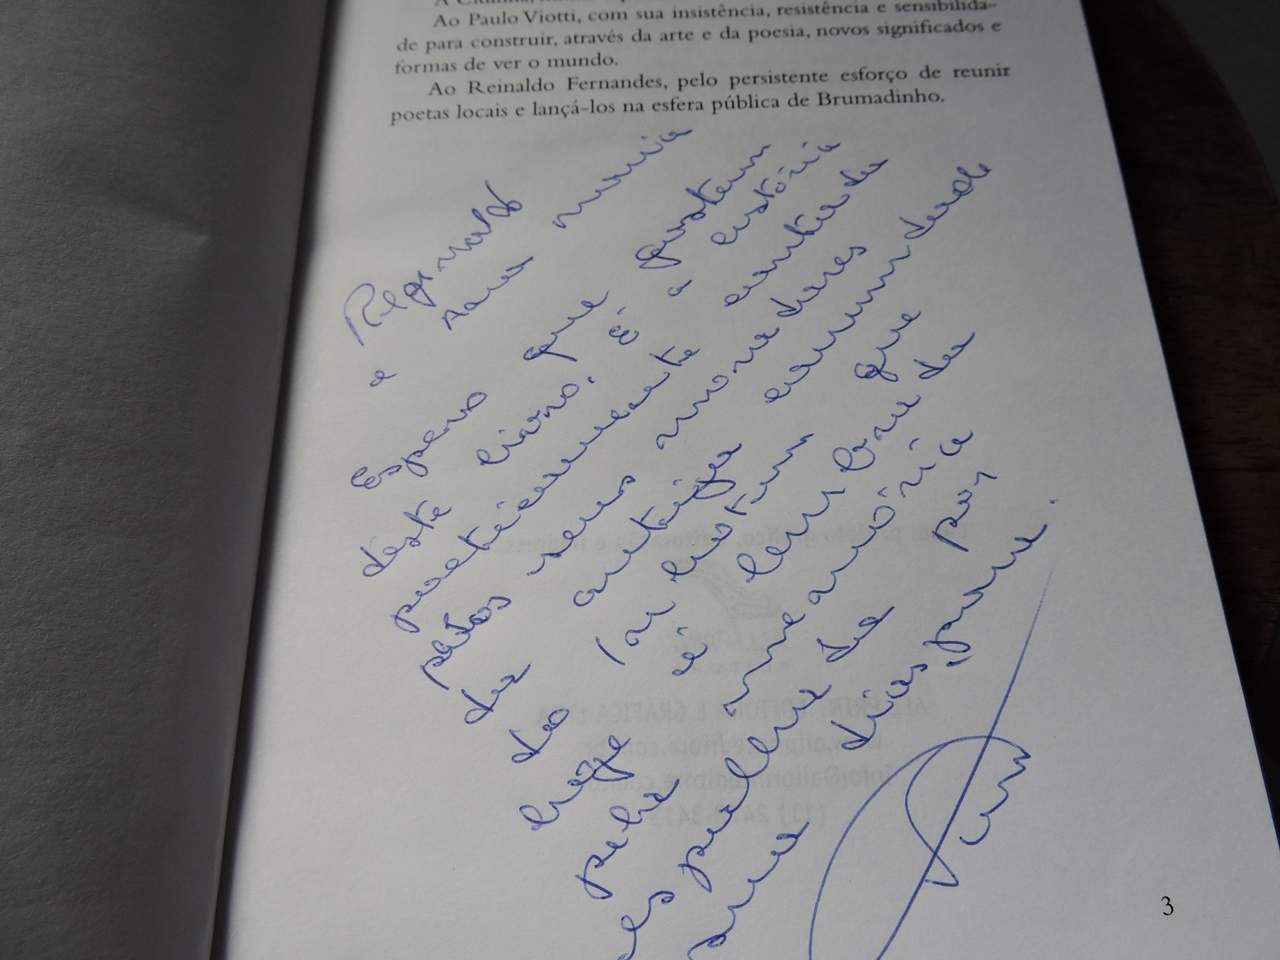 Ao Paulo Viotti, com sua insistência, resistência e sensibilida-
de para construir, através da arte e da poesia, novos significados e
formas de ver o mundo.
Ao Reinaldo Fernandes, pelo persistente esforço de reunir
poetas locais e lançá-los na esfera pública de Brumadinho.
Reginaldo
e Ana Maria
Espero que gostem
deste livro. É a estória
poeticamente contada
pelos seus moradores
da antiga comunidade
do
hoje é lembrada
pela memória
da por
dias
3